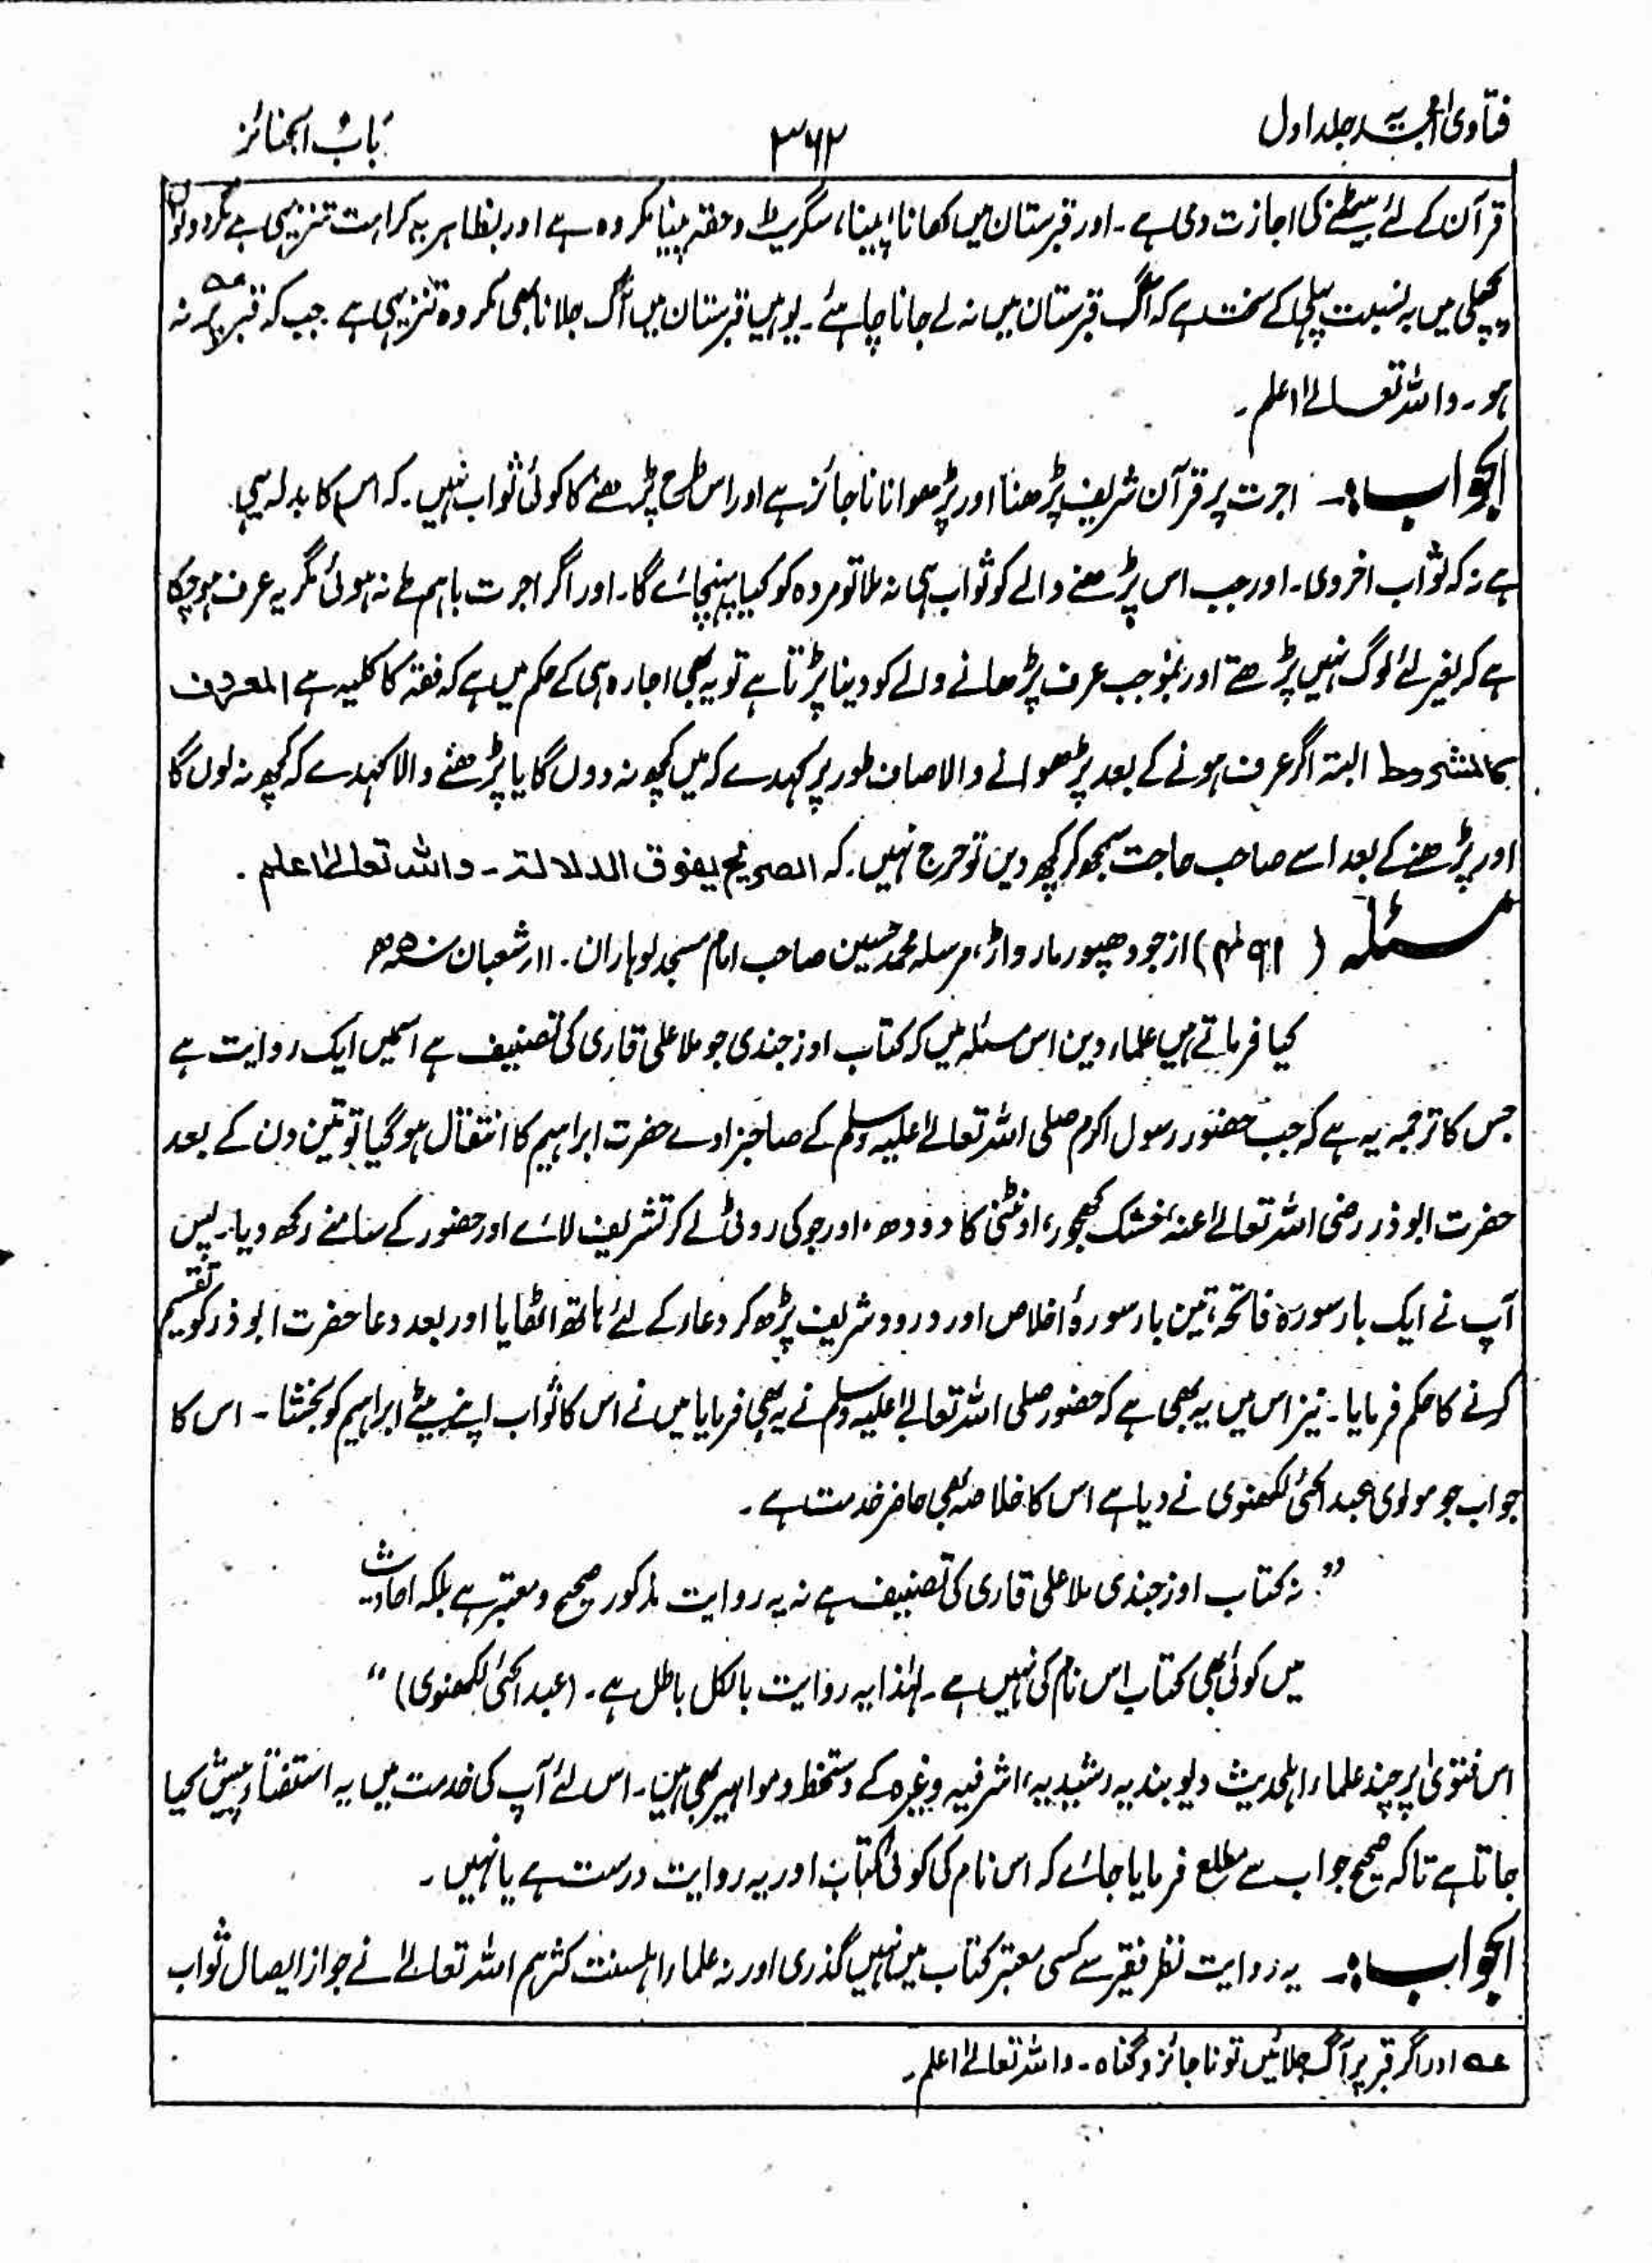 فتاویٰ امجدیہ جلد اول
۳۶۲
باب الجنائز
قرآن کے لئے بیٹھنے کی اجازت دی ہے ۔ اور قبرستان میں کھانا، پینا، سگریٹ و حقہ پینا مکروہ ہے اور بظاہر یہ کراہت تنزیہی ہے مگر دونوں
پچھلی میں بہ نسبت پہلی کے سخت ہے کہ آگ قبرستان میں نہ لے جانا چاہئے ۔ یوہیں قبرستان میں آگ جلانا بھی مکروہ تنزیہی ہے جب کہ قبر پر عہ نہ
ہو ۔ واللہ تعالیٰ اعلم ۔
الجواب :۔ اجرت پر قرآن شریف پڑھنا اور پڑھوانا ناجائز ہے اور اس طرح پڑھنے کا کوئی ثواب نہیں ۔ کہ اس کا بدلہ یہی
ہے نہ کہ ثواب اخروی ۔ اور جب اس پڑھنے والے کو ثواب ہی نہ ملا تو مردہ کو کیا پہنچائے گا ۔ اور اگر اجرت باہم طے نہ ہوئی مگر یہ عرف ہوچکا
ہے کہ بغیر لئے لوگ نہیں پڑھتے اور بموجب عرف پڑھانے والے کو دینا پڑتا ہے تو یہ بھی اجارہ ہی کے حکم میں ہے کہ فقہ کا کلیہ ہے المعروف
کالمشروط البتہ اگر عرف ہونے کے بعد پڑھوانے والا صاف طور پر کہدے کہ میں کچھ نہ دوں گا یا پڑھنے والا کہدے کہ کچھ نہ لوں گا
اور پڑھنے کے بعد اسے صاحب حاجت سمجھ کر کچھ دیں تو حرج نہیں ۔ کہ الصریح یفوق الدلالۃ ۔ واللہ تعالیٰ اعلم ۔
مسئلہ ( ۴۹۱ ) از جودھپور مارواڑ، مرسلہ محمد حسین صاحب امام مسجد لوہاران ۔ ۱۱ شعبان
کیا فرماتے ہیں علماء دین اس مسئلہ میں کہ کتاب اوزجندی جو ملا علی قاری کی تصنیف ہے اسمیں ایک روایت ہے
جس کا ترجمہ یہ ہے کہ جب حضور رسول اکرم صلی اللہ تعالیٰ علیہ وسلم کے صاحبزادے حضرت ابراہیم کا انتقال ہوگیا تو تین دن کے بعد
حضرت ابوذر رضی اللہ تعالیٰ عنہ خشک کھجور، اونٹنی کا دودھ، اور جو کی روٹی لے کر تشریف لائے اور حضور کے سامنے رکھ دیا ۔ پس
آپ نے ایک بار سورۂ فاتحہ، تین بار سورۂ اخلاص اور درود شریف پڑھ کر دعا کے لئے ہاتھ اٹھایا اور بعد دعا حضرت ابوذر کو تقسیم
کرنے کا حکم فرمایا ۔ نیز اس میں یہ بھی ہے کہ حضور صلی اللہ تعالیٰ علیہ وسلم نے یہ بھی فرمایا میں نے اس کا ثواب اپنے بیٹے ابراہیم کو بخشا ۔ اس کا
جواب جو مولوی عبد الحئی لکھنوی نے دیا ہے اس کا خلاصہ بھی حاضر خدمت ہے ۔
”نہ کتاب اوزجندی ملا علی قاری کی تصنیف ہے نہ یہ روایت مذکور صحیح و معتبر ہے بلکہ احادیث
میں کوئی بھی کتاب اس نام کی نہیں ہے ۔ لہٰذا یہ روایت بالکل باطل ہے ۔ (عبد الحئی لکھنوی)“
اس فتویٰ پر چند علماء اہلحدیث دیوبندیہ رشیدیہ، اشرفیہ وغیرہ کے دستخط و مواہیر بھی ہیں ۔ اس لئے آپ کی خدمت میں یہ استفتاء پیش کیا
جاتا ہے تاکہ صحیح جواب سے مطلع فرمایا جائے کہ اس نام کی کوئی کتاب اور یہ روایت درست ہے یا نہیں ۔
الجواب :۔ یہ روایت نظر فقیر سے کسی معتبر کتاب میں نہیں گذری اور نہ علماء اہلسنت کثرہم اللہ تعالیٰ نے جواز ایصال ثواب
عہ اور اگر قبر پر آگ جلائیں تو ناجائز و گناہ ۔ واللہ تعالیٰ اعلم ۔